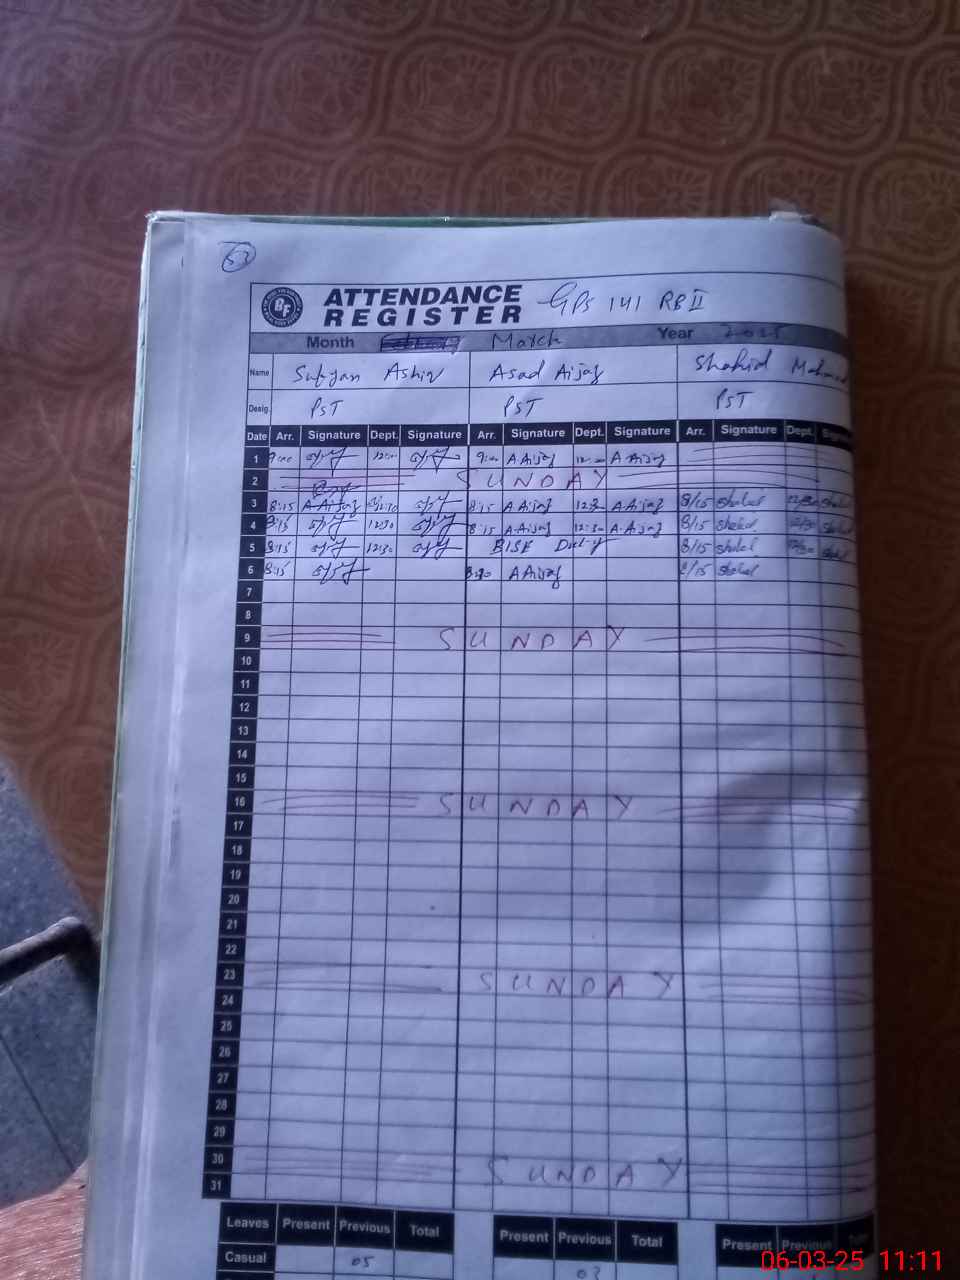 53
BF
ATTENDANCE
REGISTER
GPS 141 RB II
Month March Year 2025
Name Sufyan Ashiq Asad Aijaz Shahid
Desig. PST PST PST
Date Arr. Signature Dept. Signature Arr. Signature Dept. Signature Arr. Signature Dept.
1 9:00 12:00 9:00 A Aijaz 12:00 A Aijaz
2 SUNDAY
3 8:15 A Aijaz 12:30 8:15 A Aijaz 12:30 A Aijaz 8/15 Shahid 12/30 Shahid
4 8:15 12:30 8:15 A Aijaz 12:30 A Aijaz 8/15 Shahid 12/30 Shahid
5 8:15 12:30 BISE Duty 8/15 Shahid 12/30 Shahid
6 8:15 A Aijaz 8/15 Shahid
7
8
9 SUNDAY
10
11
12
13
14
15
16 SUNDAY
17
18
19
20
21
22
23 SUNDAY
24
25
26
27
28
29
30 SUNDAY
31
Leaves Present Previous Total Present Previous Total Present Previous
Casual 05 03
06-03-25 11:11